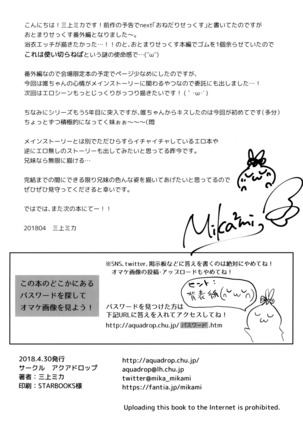 こんにちは！三上ミカです！前作の予告でnext「おねだりせっくす」と書いてたのですが
おとまりせっくす番外編となりました～。
浴衣エッチが描きたかった…！！のと、おとまりせっくす本編でゴムを1個余らせていたので
これは使い切らねばという謎の使命感で…(˘ω˘)
番外編なので会場限定本の予定でページ少なめにしたのですが、
今回は雛ちゃんの心情がメインストーリーに関わるやつなので委託にも出しました…！
次回はエロシーンもどっとじっくりがっつり描きたいです！(｀･ω･´)
ちなみにシリーズもう5年目に突入ですが、雛ちゃんからキスしたのは今回が初めてです(多分)
ちょっとずつ積極的になってく妹ぉぉ～～～(悶
メインストーリーとは別にただひたすらイチャイチャしているエロ本や
逆にエロ無しのストーリーも出してみたいと思ってる昨今です。
兄妹なら無限に描ける…
完結までの間にできる限り兄妹の色んな姿を描いてあげたいと思ってるので
ぜひぜひ見守ってくださると幸いです。
ではでは、また次の本にてー！！
201804　三上ミカ
Mikami
※SNS、twitter、掲示板などに答えを書くのは絶対にやめてね！
オマケ画像の投稿・アップロードもやめてね！
この本のどこかにある
パスワードを探して
オマケ画像を見よう！
ヒント：
背表紙
パスワードを見つけた方は
下記URLに答えを入れてアクセスしてね！
http://aquadrop.chu.jp/パスワード.htm
2018.4.30発行
サークル　アクアドロップ
著者：三上ミカ
印刷：STARBOOKS様
http://aquadrop.chu.jp/
aquadrop@lh.chu.jp
twitter@mika_mikami
https://fantia.jp/mikami
Uploading this book to the Internet is prohibited.